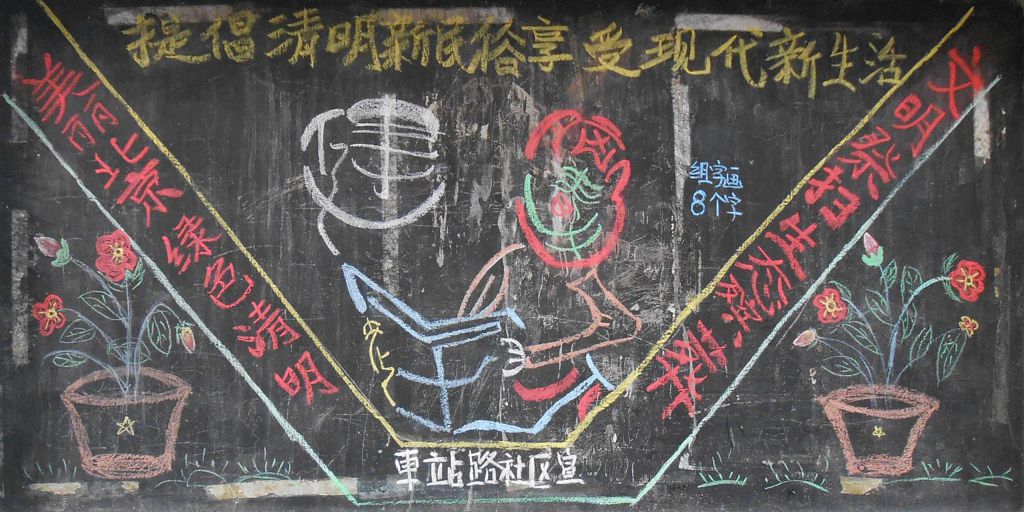 提倡清明新民俗享受现代新生活
美丽北京 绿色清明
文明祭扫生态殡葬
组字画
8个字
車站路社区宣